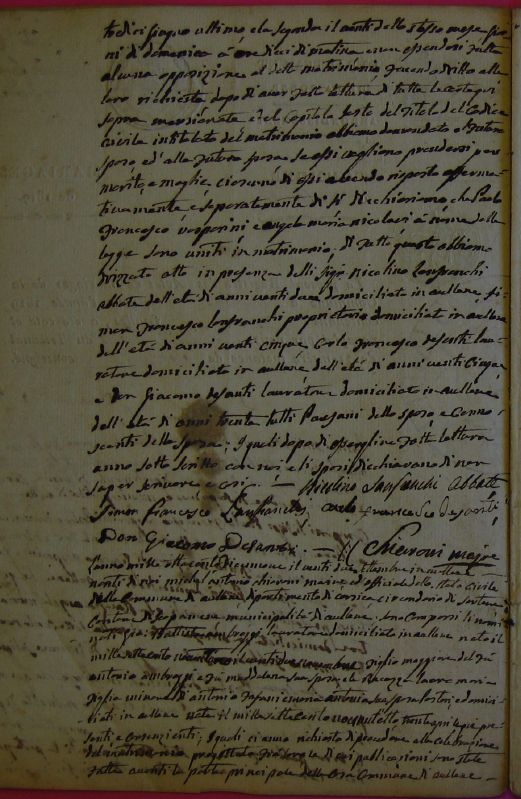 to dici Giugno ultimo e la seconda il venti dello stesso mese gior
ni di domenica a ore dieci di matina e non essendosi fatta
alcuna opposizione al detto matrimonio facendo dritto alla
loro richiesta dopo di aver fatto lettura di tutte le carte qui
sopra mensionate e del Capitolo sesto del Titolo del Codice
civile intitolato del matrimonio abbiamo domandato al futuro
sposo ed alla futura sposa se essi vogliono prendersi per
marito e moglie ciascuno di essi avendo risposto afferma
tivamente e separatamente di Si Dicchiariamo che Paolo
Francesco e angela maria nicolaci a nome della
legge sono uniti in matrimonio, di tutto questo abbiamo
drizzato atto in presenza delli Sigri nicolino lanfranchi
abbate dell età di anni venti due domiciliato in aullene si
mon francesco lanfranchi proprietario domiciliato in aullene
dell'età di anni venti cinque carlo francesco desanti lau
ratore domiciliato in aullene dell'età di anni venti cinque
e don Giacomo desanti lauratore domiciliato in aullene
dell'età di anni trenta tutti Paesani dello sposo e Cono
scenti della sposa; i quali dopo di essergliene fatta lettura
anno sotto scritto con noi e li sposi dicchiarano di non
saper scrivere e
Nicolino Lanfranchi Abbate
Simon Francesco Lanfranchi carlo francesco desanti
Don Giacomo Desanti. — Chieroni maire
L'anno mille otto cento Diecinnove il venti due settembre in
nanti di noi michel antonio chieroni maire ed officiale dello Stato Civile
della Comune di aullene dipartimento di corsica circondario di Sartene
Cantone di municipalità di aullene, sono Comparsi li nomi
nati Gio: Battista ambroggi lauratore domiciliato in aullene nato il
mille sette cento il venti due novembre figlio maggiore del fù
antonio ambroggi e fù maddalena sua sposa, e la Ragazza maria
figlia minore di antonio e maria antonia sua sposa Pastori e domici
liati in aullene nata il mille sette cento novanta qui pre
senti e Consenzienti; i quali ci anno richiesto di procedere alla Celebrazione
del matrimonio progettato fra loro le di cui publicazioni sono state
fatte avanti la porta principale della Casa Commune di aullene